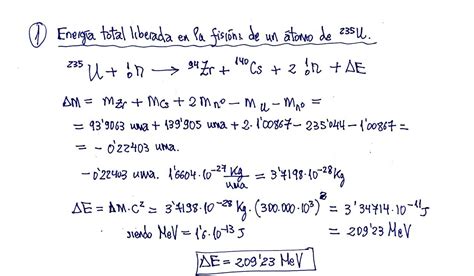 ① Energía total liberada en la fisión de un átomo de ²³⁵U.
²³⁵U + ¹₀n → ⁹⁴Zr + ¹⁴⁰Cs + 2 ¹₀n + ΔE
ΔM = m_Zr + m_Cs + 2 m_n⁰ − m_U − m_n⁰ =
= 93'9063 uma + 139'905 uma + 2·1'00867 − 235'044 − 1'00867 =
= − 0'22403 uma.
− 0'22403 uma. 1'6604·10⁻²⁷ Kg/uma = 3'7198·10⁻²⁸ Kg
ΔE = ΔM·C² = 3'7198·10⁻²⁸ Kg·(300.000·10³)² = 3'34714·10⁻¹¹ J
siendo MeV = 1'6·10⁻¹³ J = 209'23 MeV
ΔE = 209'23 MeV